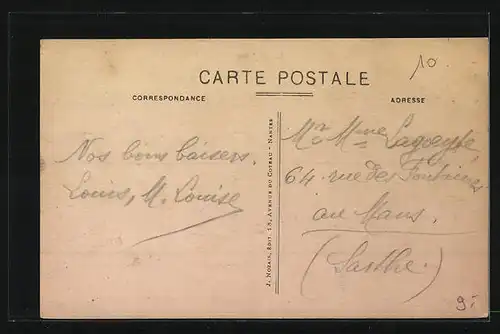 10
CARTE POSTALE
CORRESPONDANCE
ADRESSE
Nos bons baisers.
Louis, M. Louise
J. Nozais, Edit. 13, Avenue du Coteau - Nantes
Mr Mme
64 rue des Fontaines
au Mans.
(Sarthe.)